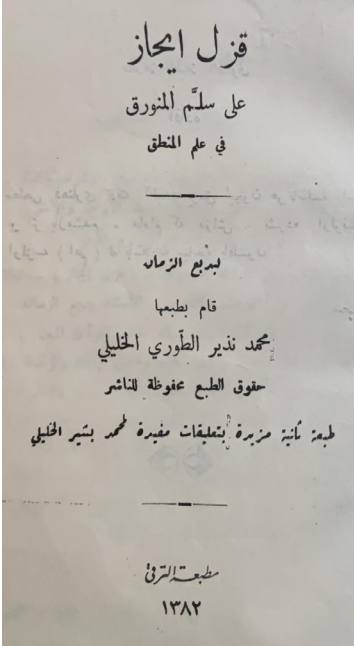 قزل ايجاز
على سلّم المنورق
في علم المنطق
لبديع الزمان
قام بطبعها
محمد نذير الطوري الخليلي
حقوق الطبع محفوظة للناشر
طبعة ثانية مزيدة بتعليقات مفيدة لمحمد بشير الخليلي
مطبعة الترقي
١٣٨٢